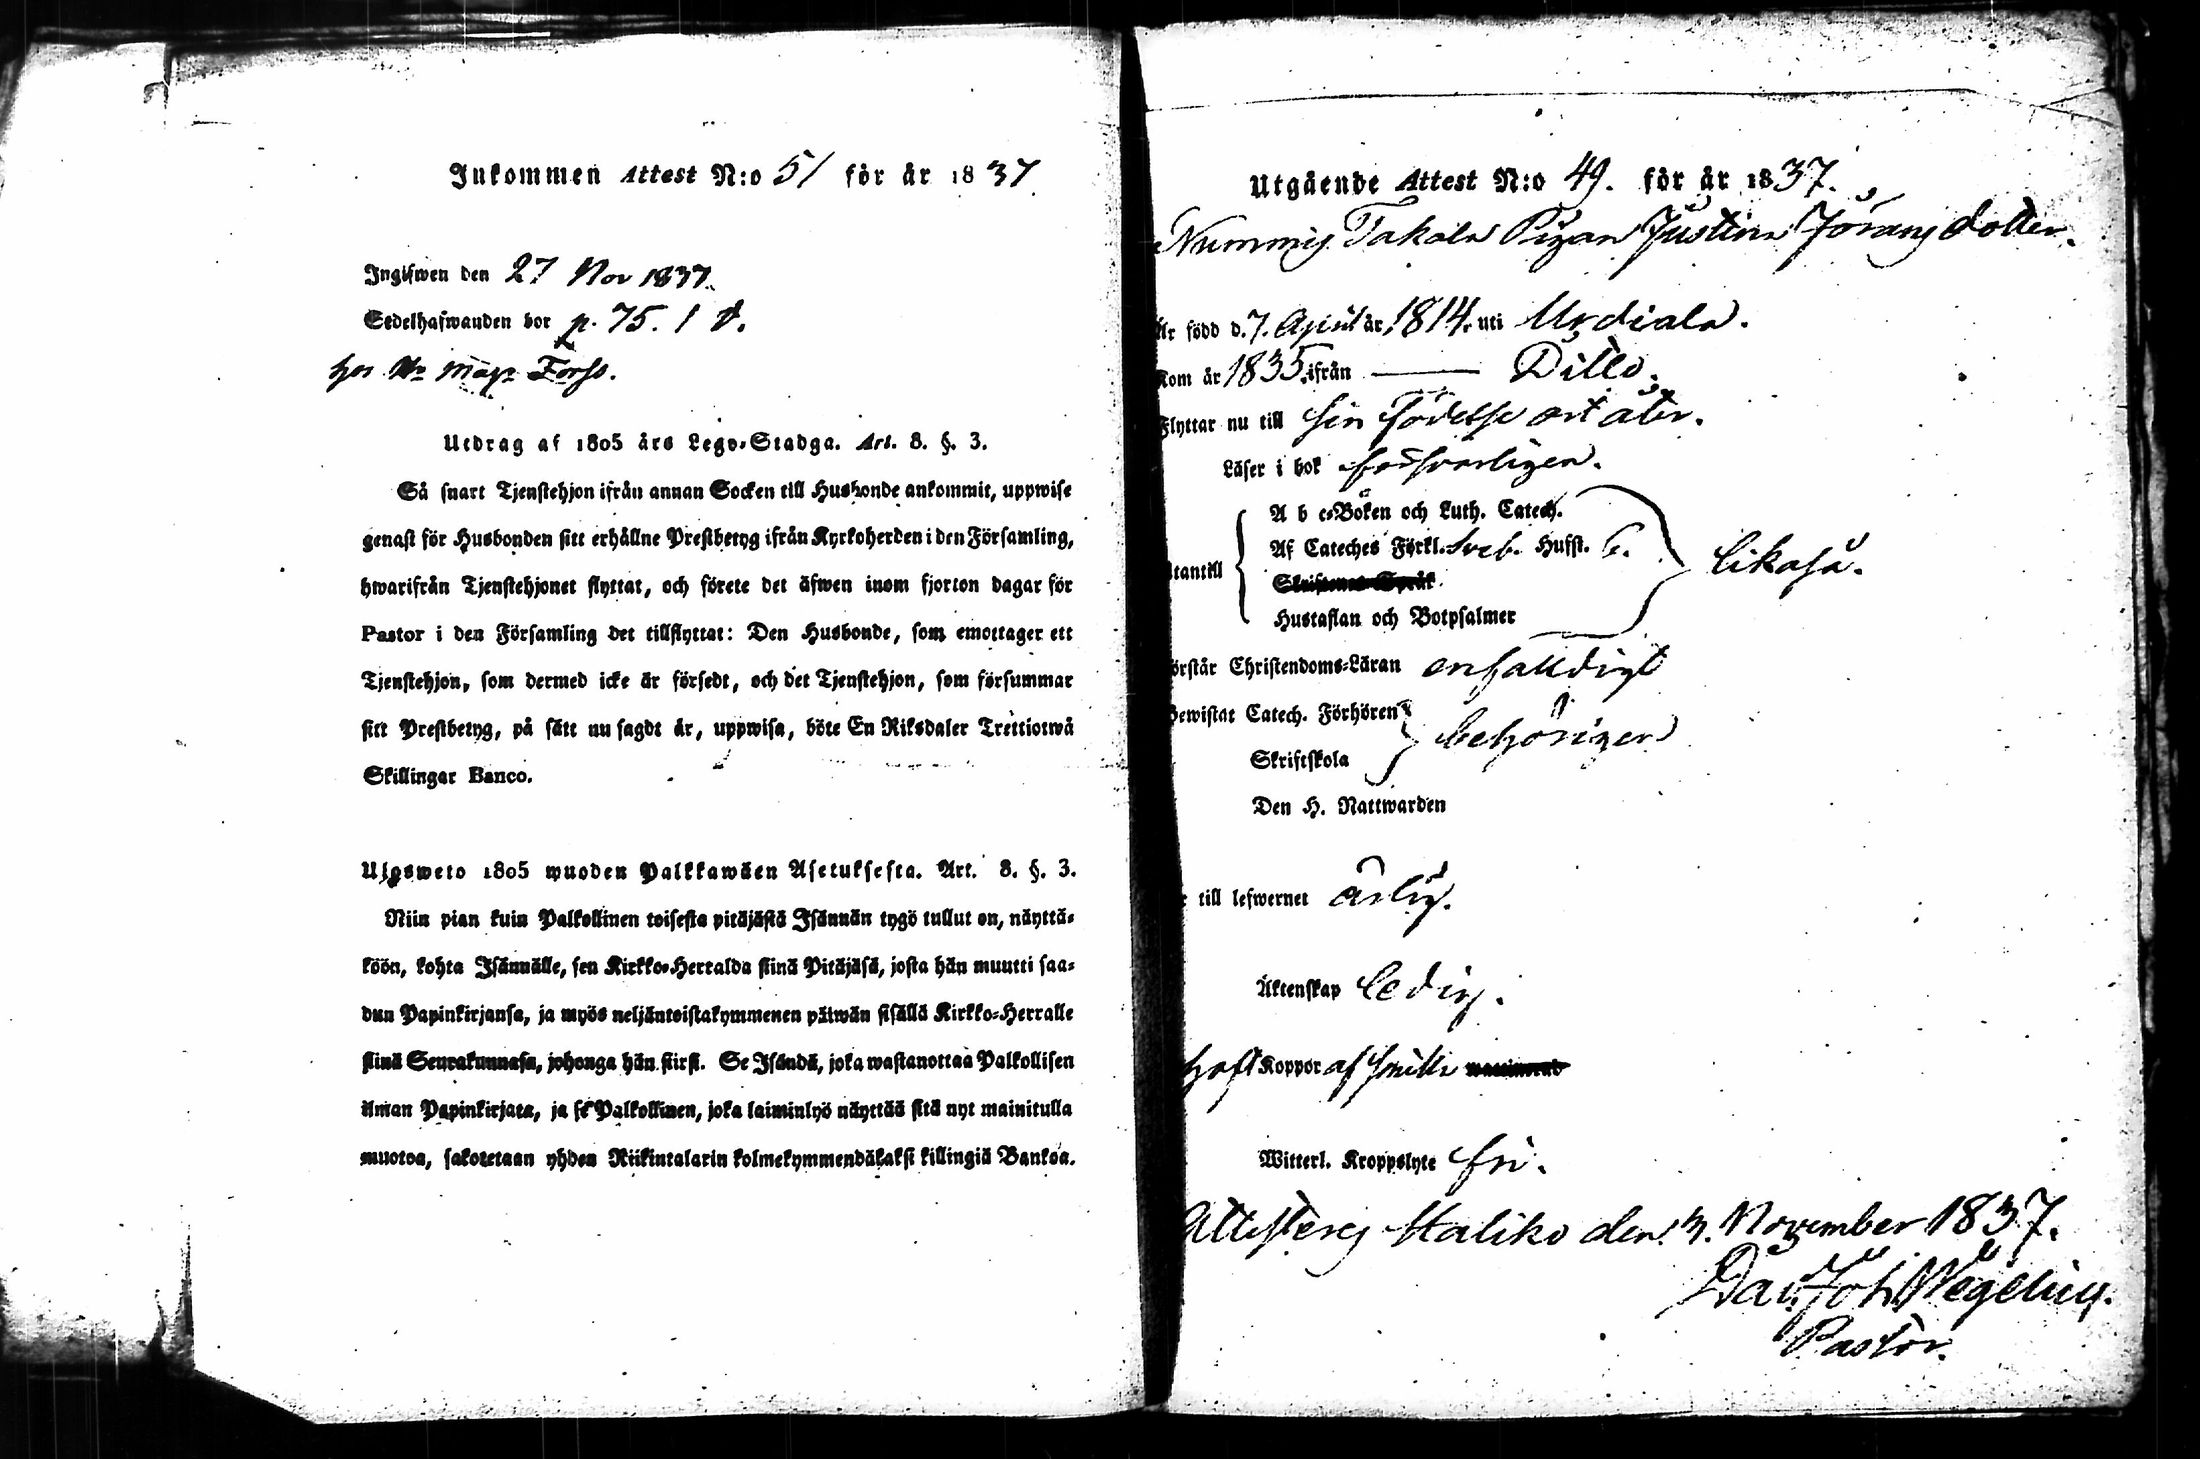 Inkommen Attest N:o 51 för år 1837
Ingifwen den 27 Nov 1837.
Sedelhafwanden bor p. 75. 1 d.
hos Hr Mag: Forss.
Utdrag af 1805 års Lego-Stadga. Art. 8. §. 3.
Så snart Tjenstehjon ifrån annan Socken till Husbonde ankommit, uppwise
genast för Husbonden sitt erhållne Prestbetyg ifrån Kyrkoherden i den Församling,
hwarifrån Tjenstehjonet flyttat, och förete det äfwen inom fjorton dagar för
Pastor i den Församling det tillflyttat: Den Husbonde, som emottager ett
Tjenstehjon, som dermed icke är försedt, och det Tjenstehjon, som försummar
sitt Prestbetyg, på sätt nu sagdt är, uppwisa, böte En Riksdaler Trettiotwå
Skillingar Banco.
Ulosweto 1805 wuoden Palkkawäen Asetuksesta. Art. 8. §. 3.
Niin pian kuin Palkollinen toisesta pitäjästä Isännän tygö tullut on, näyttä-
köön, kohta Isännälle, sen Kirkko-Herralda siinä Pitäjäsä, josta hän muutti saa-
dun Papinkirjansa, ja myös neljäntoistakymmenen päiwän sisällä Kirkko-Herralle
siinä Seurakunnasa, johonga hän siirsi. Se Isändä, joka wastanottaa Palkollisen
ilman Papinkirjata, ja se Palkollinen, joka laiminlyö näyttää sitä nyt mainitulla
muotoa, sakotetaan yhden Riikintalarin kolmekymmendäkaksi killingiä Bankoa.
Utgående Attest N:o 49. för år 1837.
Nummis Takala Pigan Justina Jörans dotter.
Är född d. 7. April år 1814. uti Urdiala.
Kom år 1835. ifrån — Ditto.
Flyttar nu till sin födelse ort åter.
Läser i bok försvarligen.
A b c-Boken och Luth. Catech.
Af Cateches Förkl. Sveb. Hufst. 6.
Utantill
Skriftenes Språk
likaså.
Hustaflan och Botpsalmer
örstår Christendoms-Läran enfalldigt
Bewistat Catech. Förhören
behörigen
Skriftskola
Den H. Nattwarden
r till lefwernet ärlig.
Äktenskap ledig.
haft Koppor af smitta
Witterl. Kroppslyte fri.
Attesteras Haliko den 3. November 1837.
Dav. Joh. Wegelius.
Pastor.